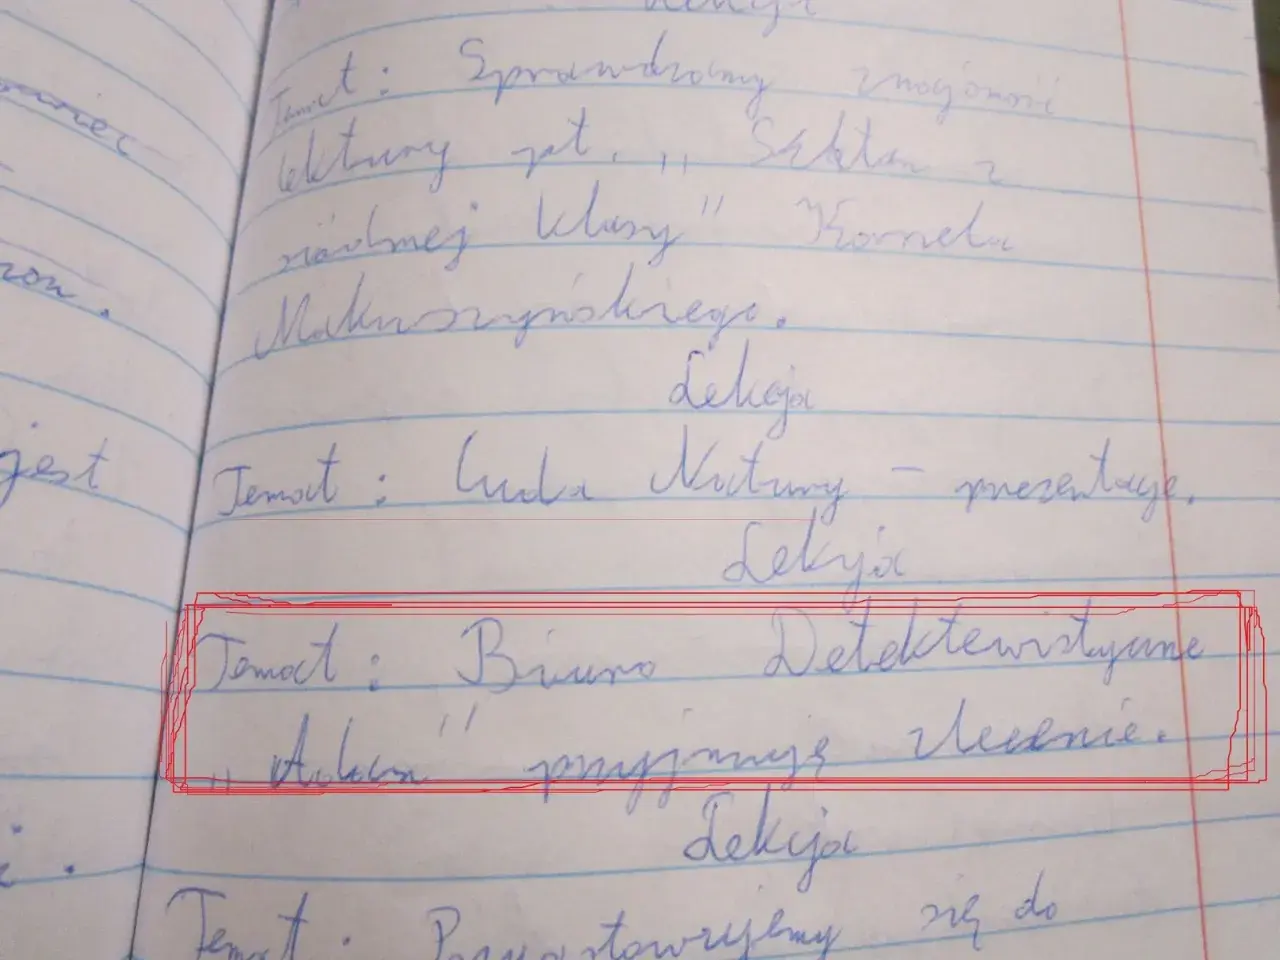 Lekcja
Temat: Sprawdzamy znajomość
lektury pt. „Szatan z
siódmej klasy" Kornela
Makuszyńskiego.
Lekcja
Temat: Cuda Natury - prezentacje.
Lekcja
Temat: Biuro Detektewistyczne
„Adam" przyjmuję zlecenie.
Lekcja
Temat: Przygotowujemy się do
jest